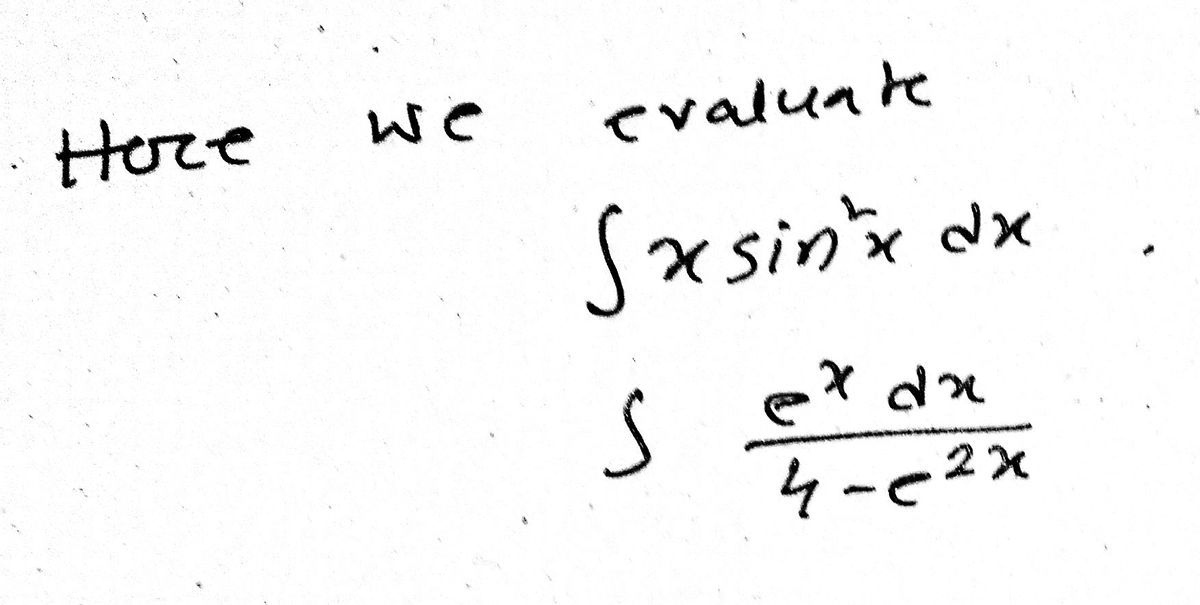 Here we evaluate
∫ x sin²x dx .
∫ e^x dx / (4 - e^{2x})